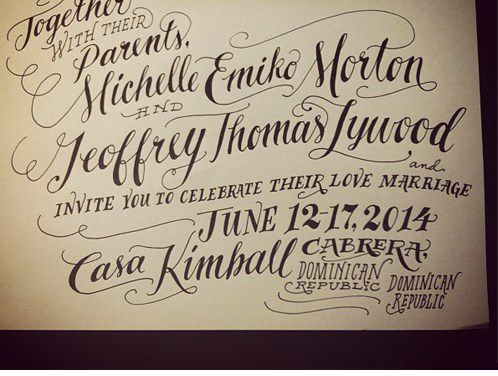 Together
WITH THEIR
Parents,
Michelle Emiko Morton
AND
Geoffrey Thomas Lywood
and
INVITE YOU TO CELEBRATE THEIR LOVE MARRIAGE
JUNE 12-17, 2014
Casa Kimball CABRERA,
DOMINICAN
REPUBLIC
DOMINICAN
REPUBLIC